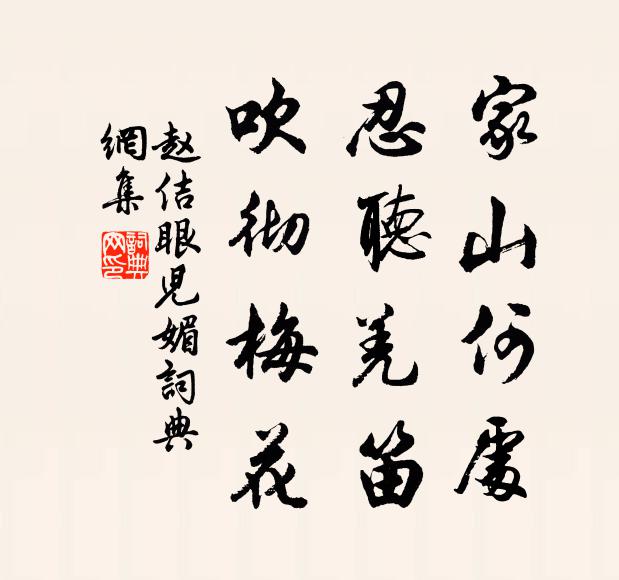 家山何處
忍聽羌笛
吹彻梅花
赵佶眼児媚詞典
網集
詞典
网印